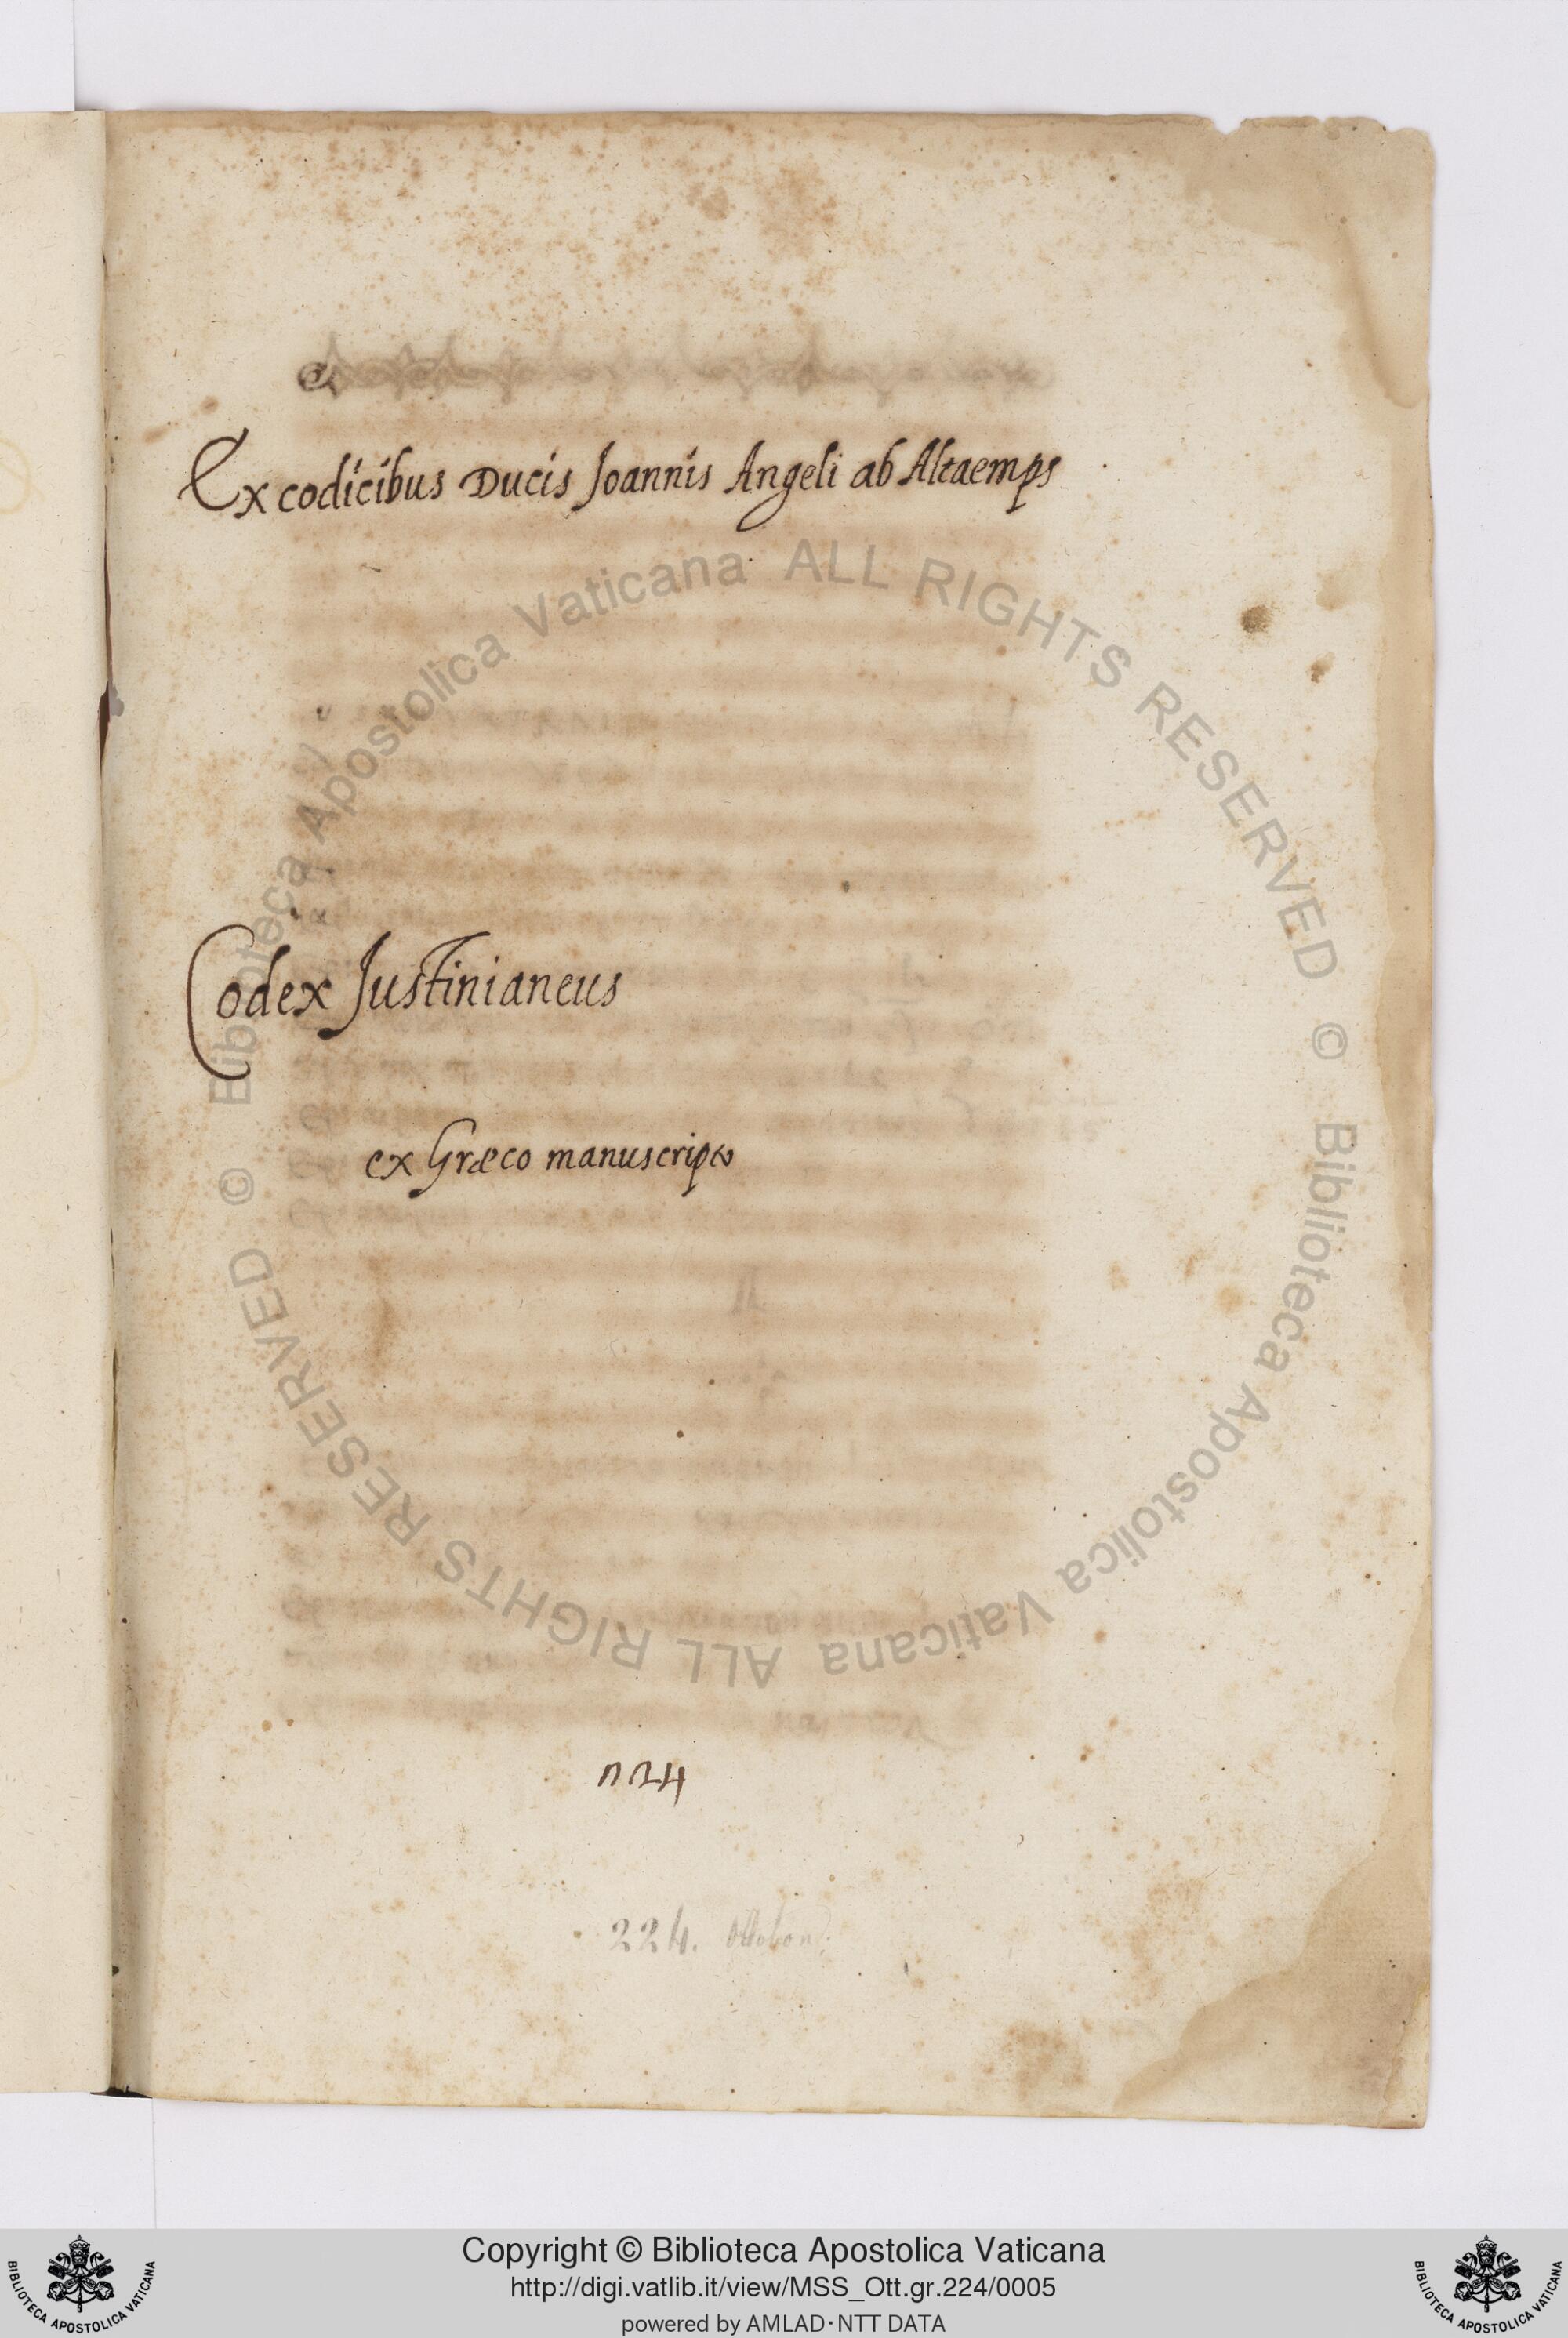 Ex codicibus Ducis Joannis Angeli ab Altaemps
Codex Justinianeus
ex Græco manuscripto
224. Ottobon.
© Biblioteca Apostolica Vaticana ALL RIGHTS RESERVED © Biblioteca Apostolica Vaticana ALL RIGHTS RESERVED
Copyright © Biblioteca Apostolica Vaticana
http://digi.vatlib.it/view/MSS_Ott.gr.224/0005
powered by AMLAD·NTT DATA
BIBLIOTECA APOSTOLICA VATICANA
BIBLIOTECA APOSTOLICA VATICANA